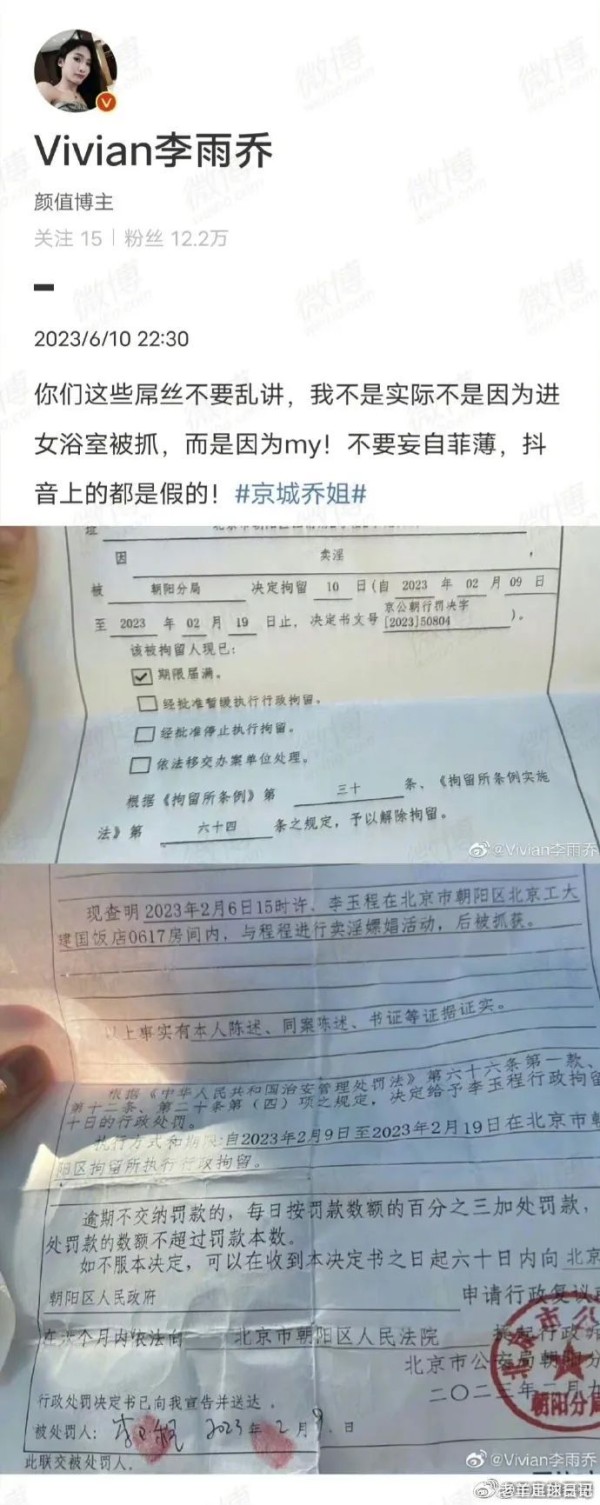 Vivian李雨乔
颜值博主
关注 15 | 粉丝 12.2万
2023/6/10 22:30
你们这些屌丝不要乱讲，我不是实际不是因为进
女浴室被抓，而是因为my！不要妄自菲薄，抖
音上的都是假的！#京城乔姐#
因 卖淫 ，
被 朝阳分局 决定拘留 10 日(自 2023 年 02 月 09 日
至 2023 年 02 月 19 日止，决定书文号 京公朝行罚决字[2023]50804 )。
该被拘留人现已：
期限届满。
经批准暂缓执行行政拘留。
经批准停止执行拘留。
依法移交办案单位处理。
根据《拘留所条例》第 三十 条、《拘留所条例实施
法》第 六十四 条之规定，予以解除拘留。
@Vivian李雨乔
现查明2023年2月6日15时许，李玉程在北京市朝阳区北京工大
建国饭店0617房间内，与程程进行卖淫嫖娼活动，后被抓获。
以上事实有本人陈述、同案陈述、书证等证据证实。
根据《中华人民共和国治安管理处罚法》第六十六条第一款、
第十二条、第二十条第（四）项之规定，决定给予李玉程行政拘留
十日的行政处罚。
执行方式和期限：自2023年2月9日至2023年2月19日在北京市朝
阳区拘留所执行行政拘留。
逾期不交纳罚款的，每日按罚款数额的百分之三加处罚款，
处罚款的数额不超过罚款本数。
如不服本决定，可以在收到本决定书之日起六十日内向 北京
朝阳区人民政府 申请行政复议或
在六个月内依法向 北京市朝阳区人民法院 提起行政诉
北京市公安局朝阳分
二〇二三年二月九
朝阳分局
行政处罚决定书已向我宣告并送达。
被处罚人： 2023年2月9日
此联交被处罚人。
@Vivian李雨乔
@老羊足球日记